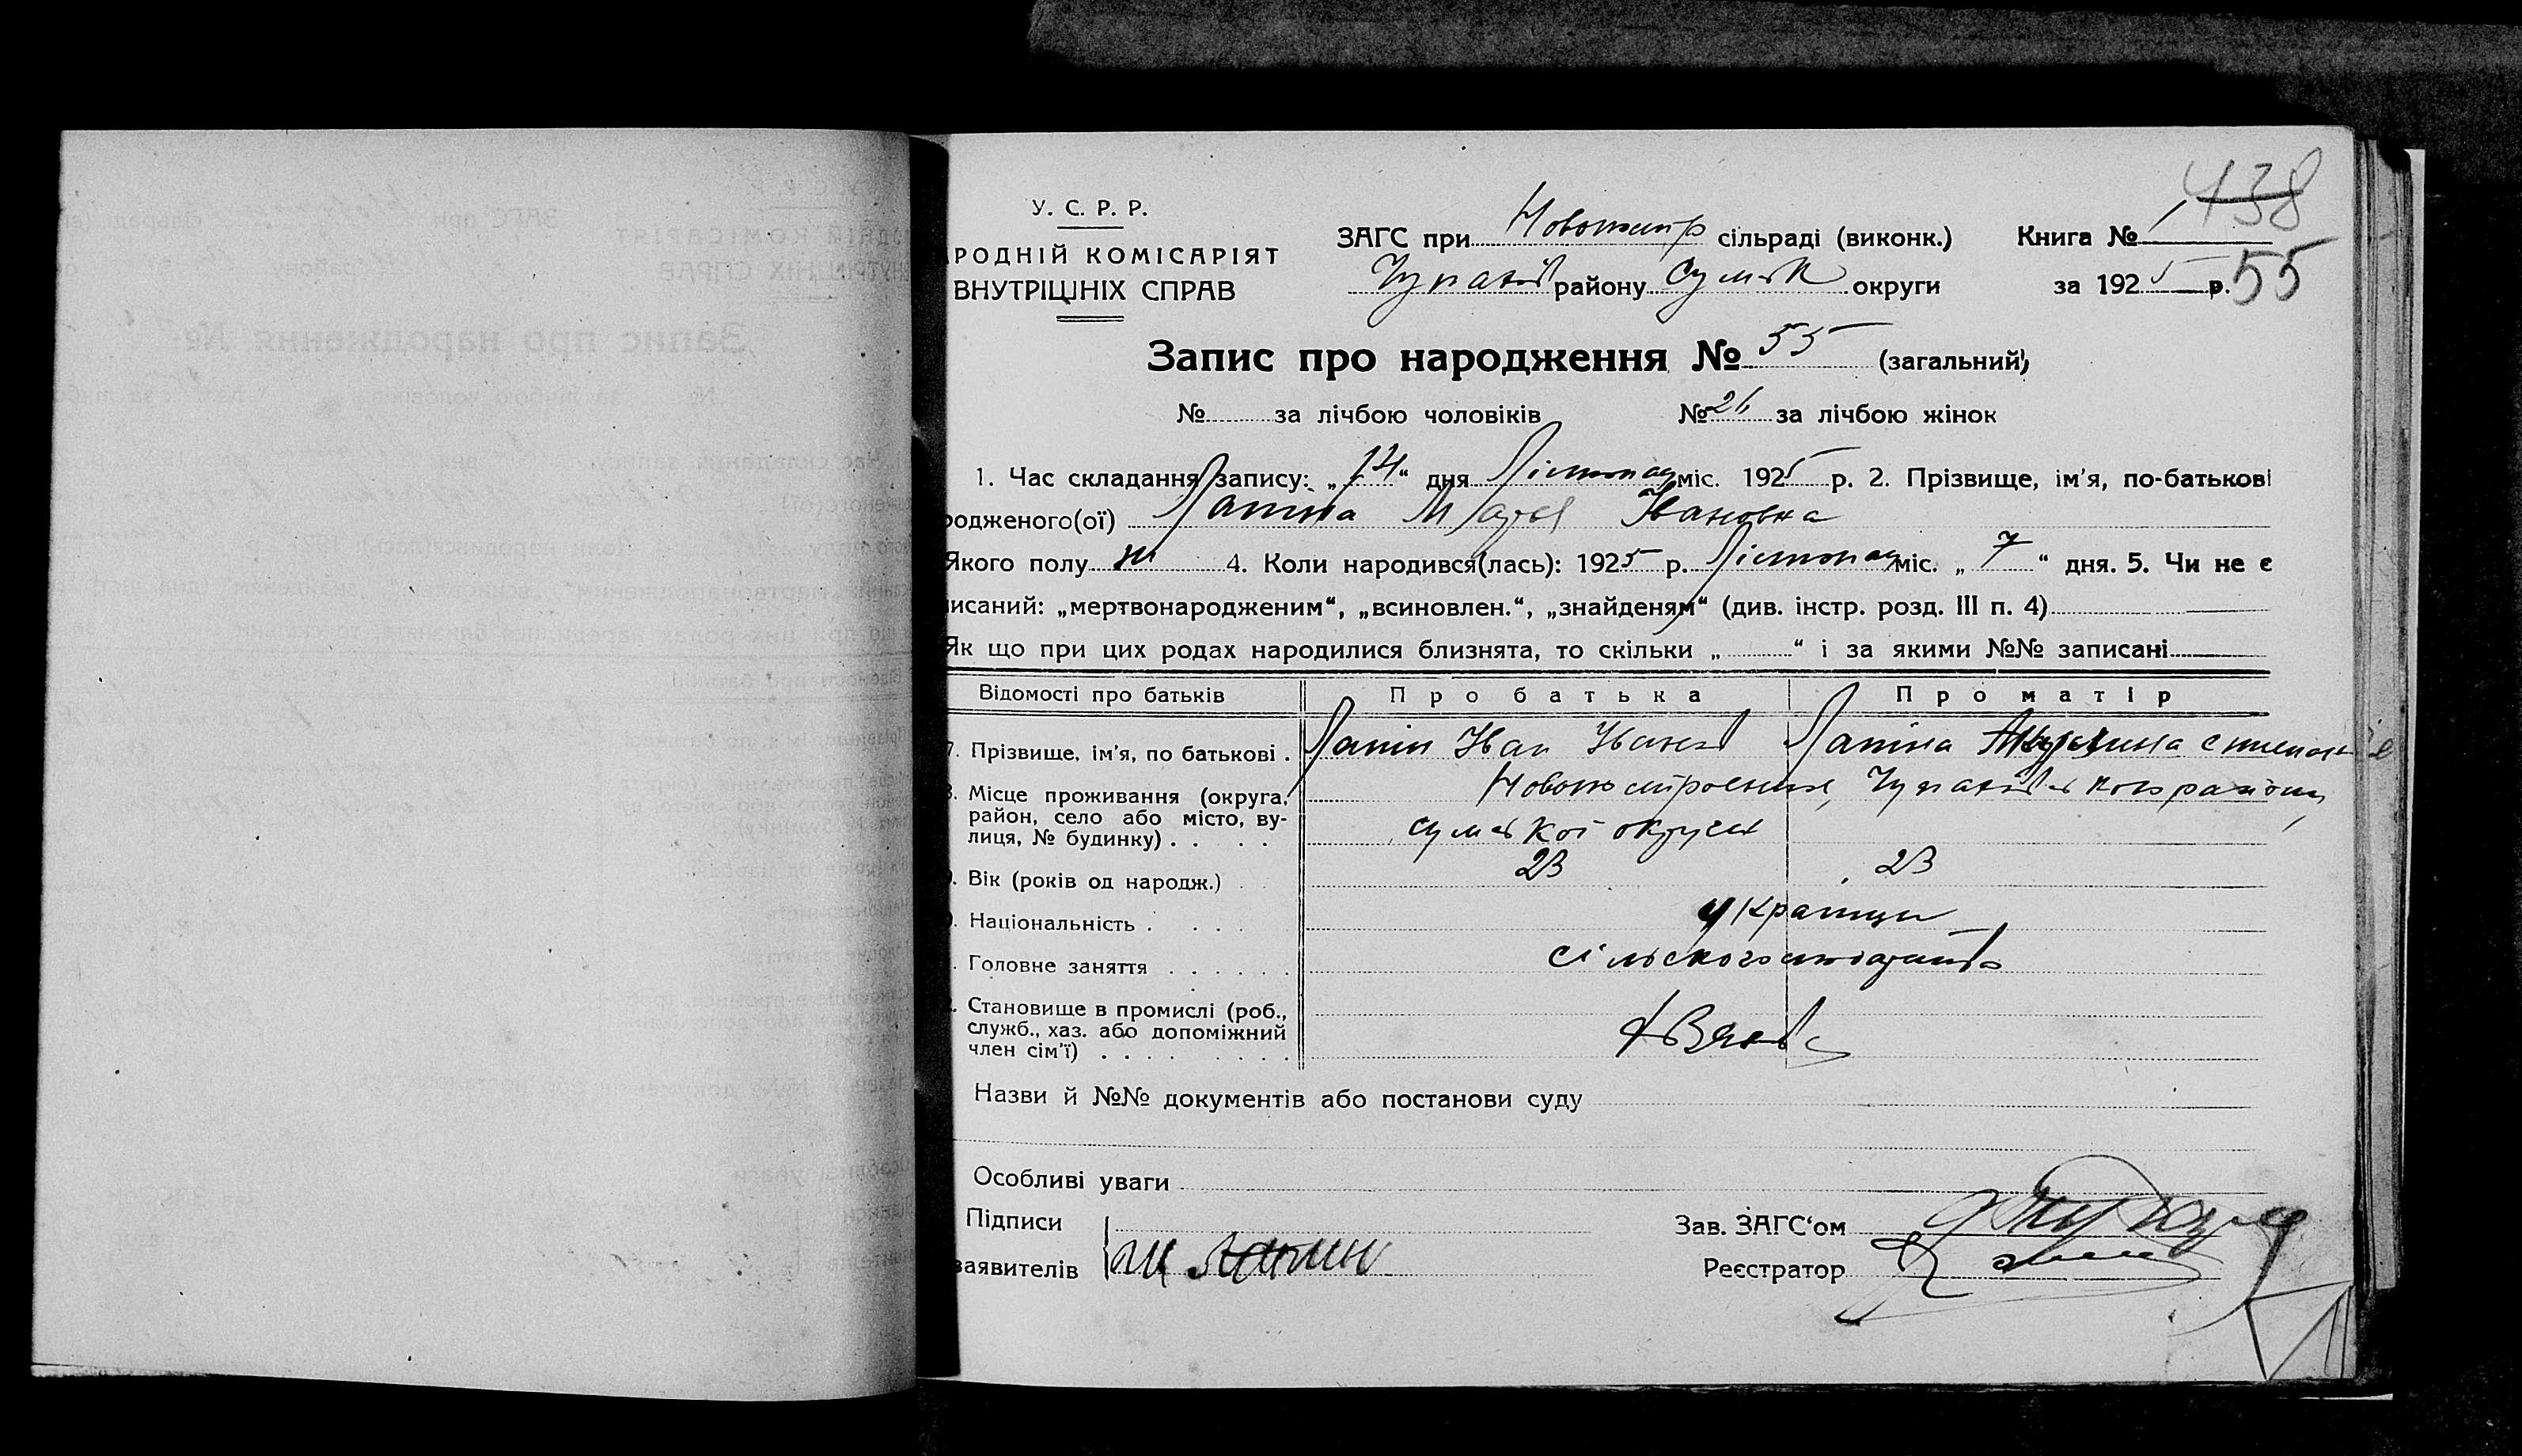 438
У. С. Р. Р.
РОДНІЙ КОМІСАРІЯТ
ВНУТРІШНІХ СПРАВ
ЗАГС при Новомир сільраді (виконк.)
району Сумск округи
Книга № 1
за 1925 р. 55
Запис про народження № 55 (загальний)
№ за лічбою чоловіків № 26 за лічбою жінок
1. Час складання запису: „14“ дня Лістопад міс. 1925 р. 2. Прізвище, ім'я, по-батькові
родженого(ої) Лапіна Марія Івановна
Якого полу ж 4. Коли народився(лась): 1925 р. Лістопад міс. „7“ дня. 5. Чи не є
исаний: „мертвонародженим“, „всиновлен.“, „знайденям“ (див. інстр. розд. III п. 4)
Як що при цих родах народилися близнята, то скільки „ “ і за якими №№ записані
Відомості про батьків Про батька Про матір
7. Прізвище, ім'я, по батькові . Лапін Іван Іванов Лапіна
8. Місце проживання (округа, район, село або місто, вулиця, № будинку) . . . . району,
сумської округи
9. Вік (років од народж.) . 23 23
Національність . . . . украінци
Головне заняття . . . . . .
Становище в промислі (роб., служб., хаз. або допоміжний член сім'ї) . . . . . . . . .
Назви й №№ документів або постанови суду
Особливі уваги
Підписи
заявителів
Зав. ЗАГС'ом
Реєстратор